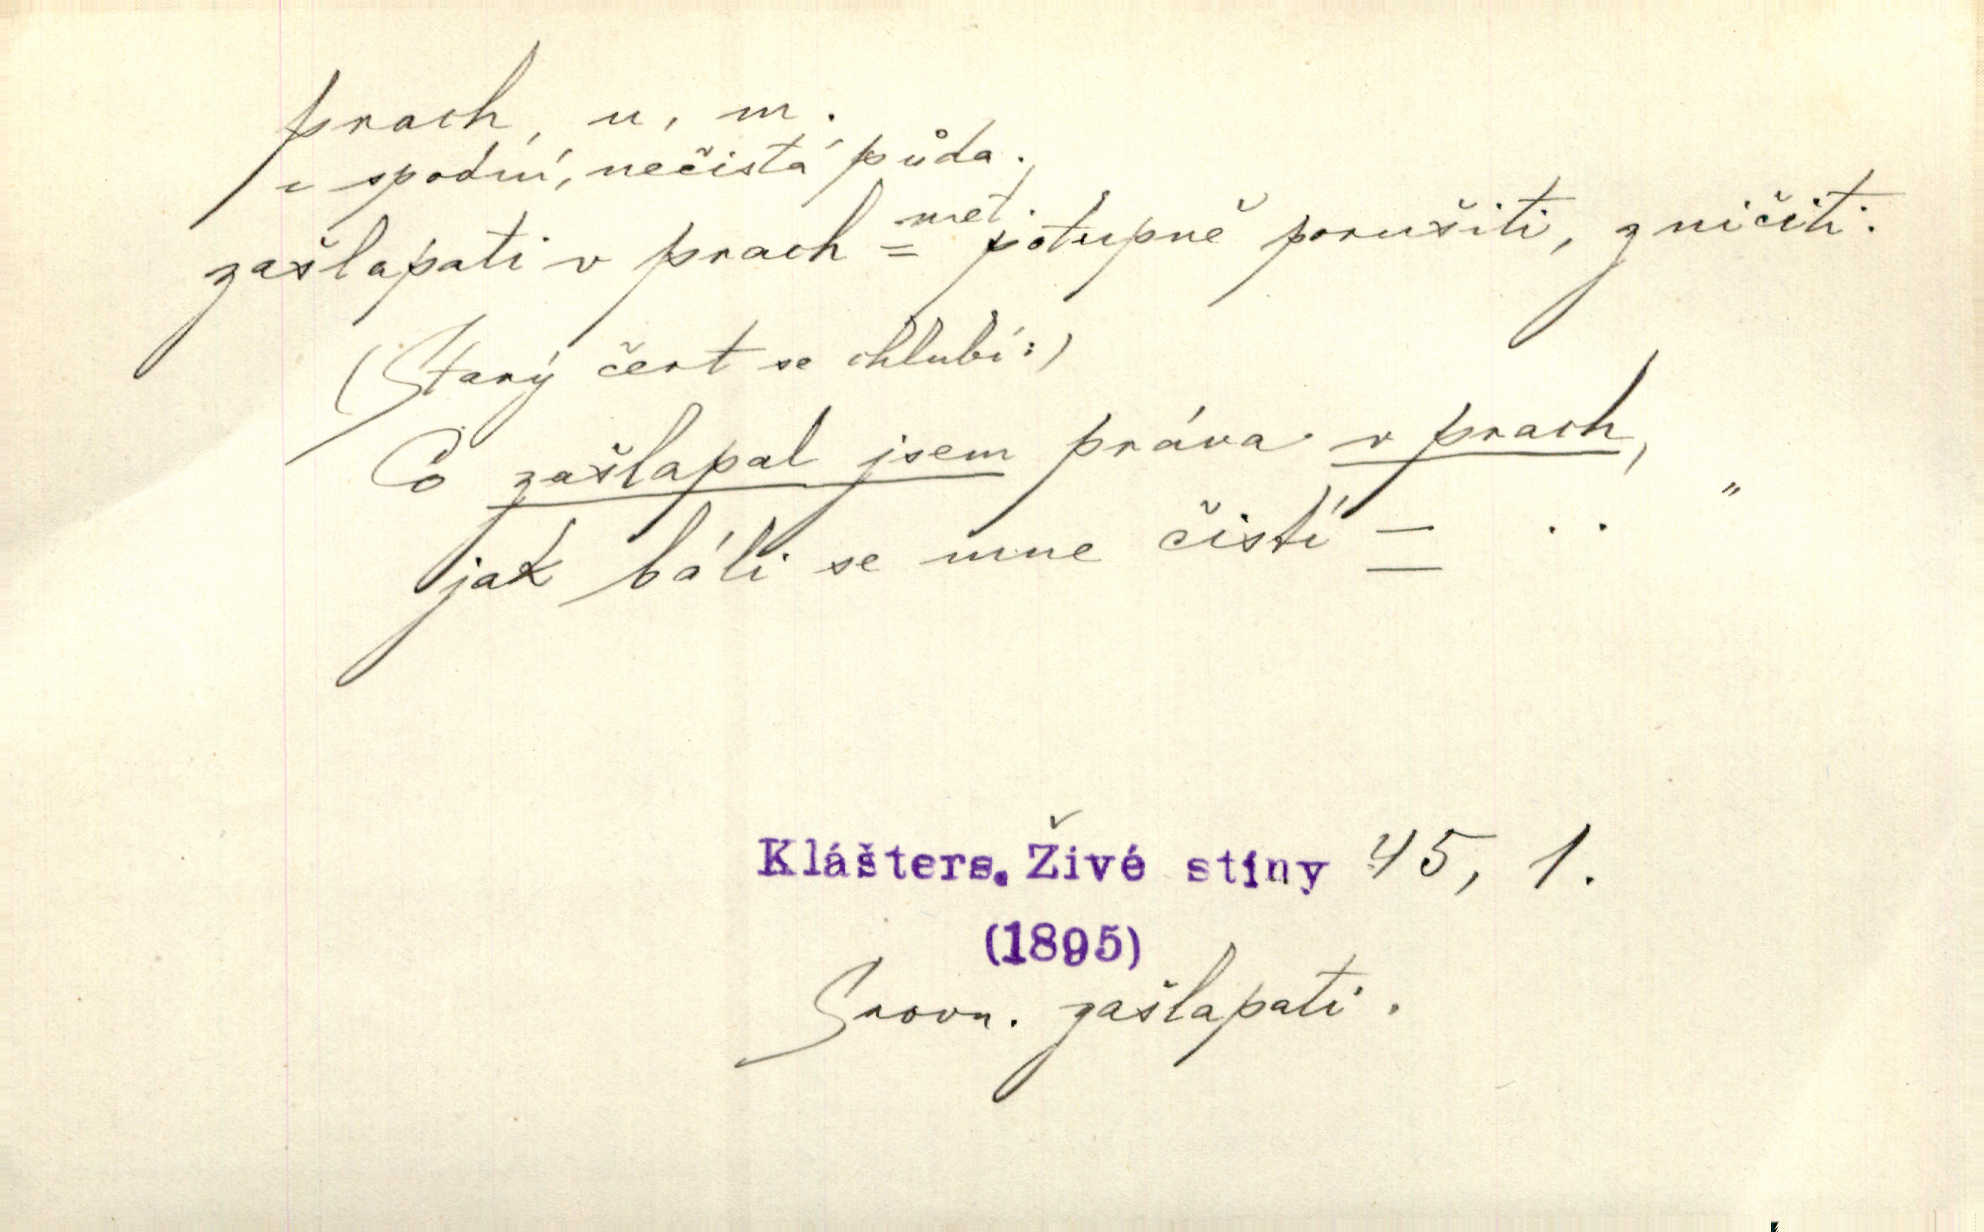 prach, u, m.
= spodní, nečistá půda.
zašlapati v prach = met. potupně porušiti, zničiti.
(Starý čert se chlubí:)
Co zašlapal jsem práva v prach,
jak báli se mne čistí — . . "
Klášters. Živé stíny 45, 1.
(1895)
Srovn. zašlapati.